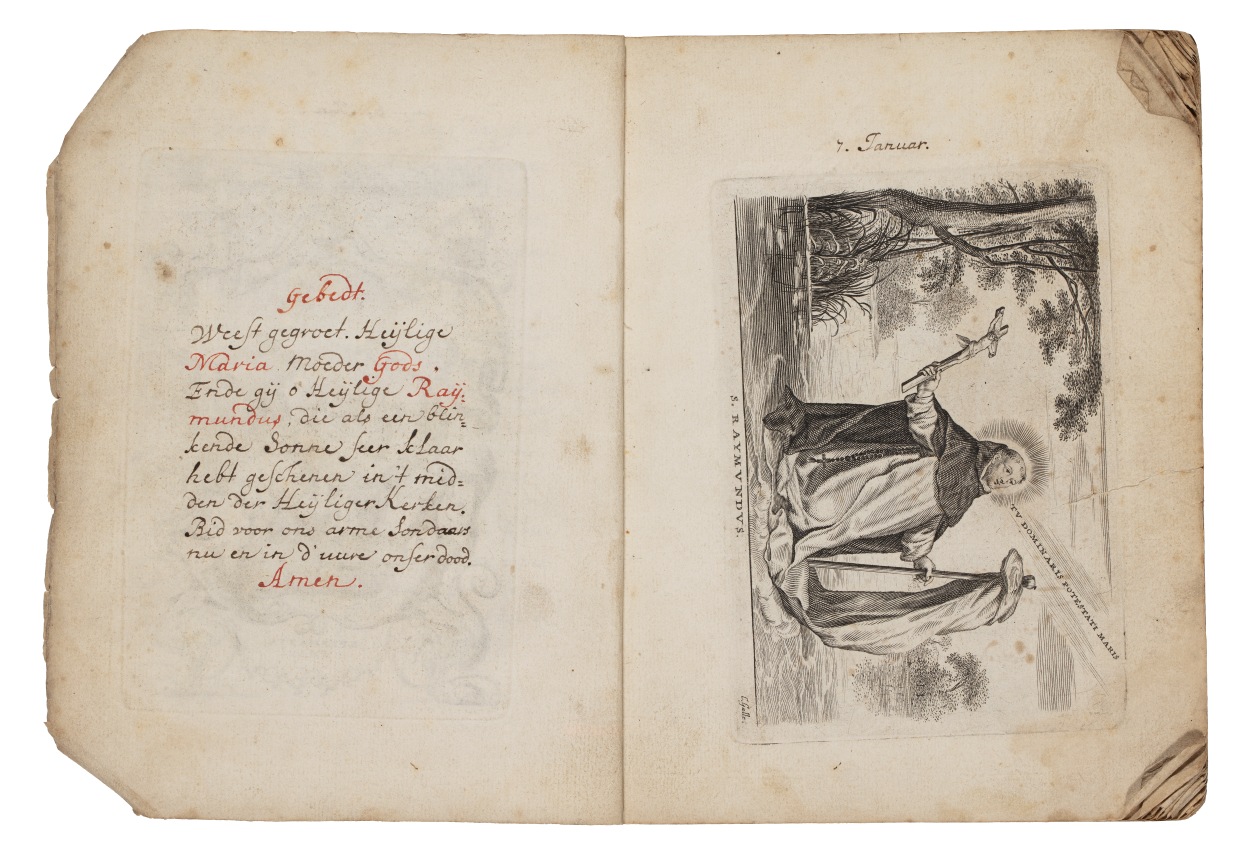 Gebedt.
Weest gegroet. Heÿlige
Maria Moeder Gods.
Ende gij o Heÿlige Raÿ=
mundus, die als een blin=
kende Sonne seer klaar
hebt geschenen in't mid=
den der Heÿliger Kerken.
Bid voor ons arme Sondaars
nu en in d'uure onser dood.
Amen.
7. Ianuar.
TV DOMINARIS POTESTATI MARIS
S. RAYMVNDVS.
C. Galle.